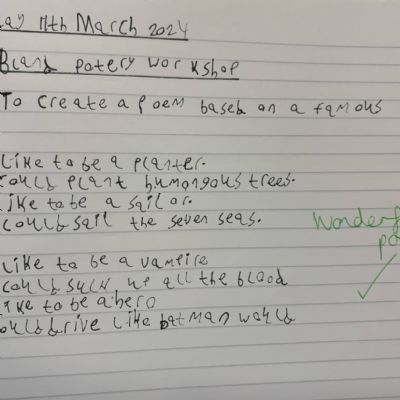 ay 11th March 2024
Bland potery workshop
To create a poem based on a famous
like to be a planter.
could plant humongous trees.
like to be a sailor.
could sail the seven seas.
Wonderf
po
like to be a vampire
could suck up all the blood
like to be a hero
ould drive like batman would